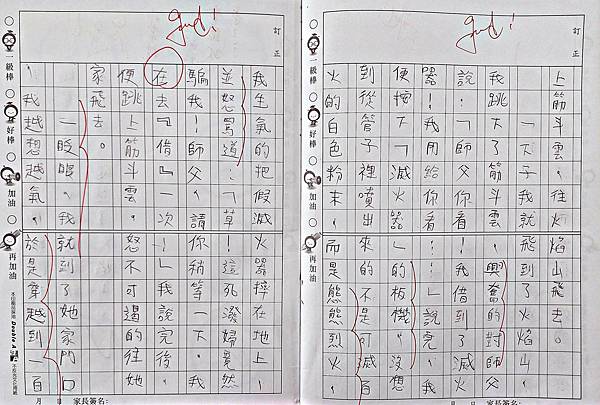 訂正
上筋斗雲，往火焰山飛去。
一下子，我就飛到了火焰。
我跳下了筋斗雲，興奮的對師父
說：「師父！你看，我借到了滅火
器！我用給你看！」說完，我
便按下「滅火器」的板機，沒想
到從管子裡噴出來的不是可滅
火的白色粉末，而是熊熊烈火，
一級棒
好棒
加油
再加油
月 日 家長簽名：
good！
訂正
我生氣的把假滅火器摔在地上
並怒罵道：「草！這死潑婦竟然
騙我！師父，請你稍等一下，我
在去『借』一次！」我說完後，
便跳上筋斗雲，怒不可遏的往她
家飛去。
一眨眼，我就到了她家門口
，我越想越氣，於是穿越到一百
一級棒
好棒
加油
再加油
Double A
月 日 家長簽名：
good！